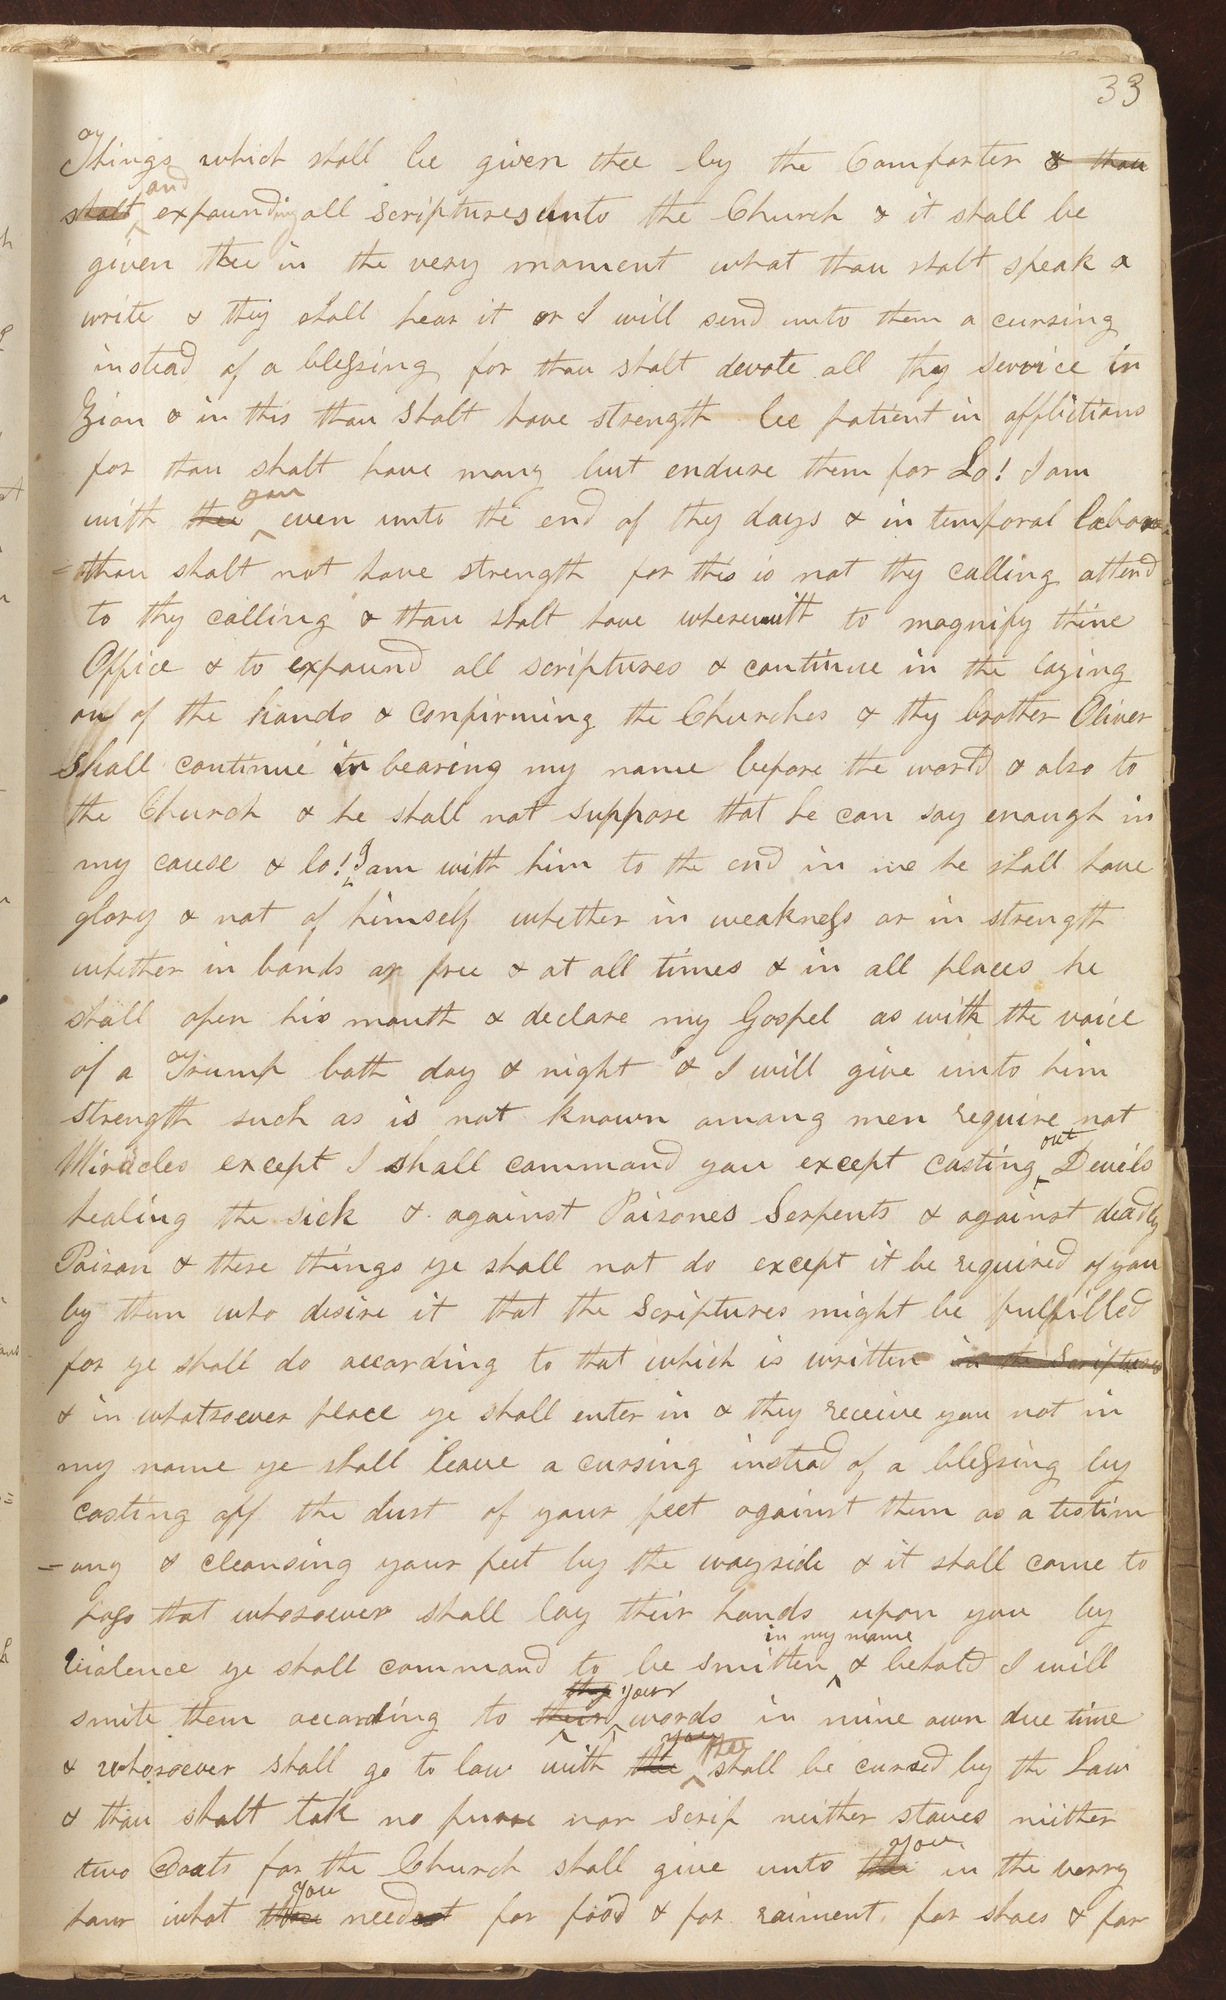 33
Things which shall be given thee by the Comforter & thou
shalt and expounding all scriptures unto the Church & it shall be
given thee in the very moment what thou shalt speak &
write & they shall hear it or I will send unto them a cursing
instead of a blessing for thou shalt devote all thy service in
Zion & in this thou shalt have strength be patient in afflictions
for thou shalt have many but endure them for Lo! I am
with thee you even unto the end of thy days & in temporal labor
=thou shalt not have strength for this is not thy calling attend
to thy calling & thou shalt have wherewith to magnify thine
Office & to expound all scriptures & continue in the laying
on of the hands & confirming the Churches & thy brother Oliver
shall continue in bearing my name before the world & also to
the Church & he shall not suppose that he can say enough in
my cause & lo! I am with him to the end in me he shall have
glory & not of himself whether in weakness or in strength
whether in bonds or free & at all times & in all places he
shall open his mouth & declare my Gospel as with the voice
of a Trump both day & night & I will give unto him
strength such as is not known among men require not
Miracles except I shall command you except casting out Devils
healing the sick & against Poisones Serpents & against deadly
Poison & these things ye shall not do except it be required of you
by them who desire it that the Scriptures might be fulfilled
for ye shall do according to that which is written in the Scriptures
& in whatsoever place ye shall enter in & they receive you not in
my name ye shall leave a cursing instead of a blessing by
casting off the dust of your feet against them as a testim
=ony & cleansing your feet by the wayside & it shall come to
pass that whosoever shall lay their hands upon you by
violence ye shall command to be smitten in my name & behold I will
smite them according to their thy your words in mine own due time
& whosoever shall go to law with thee shall be cursed by the Law
& thou shalt tak no purse nor scrip neither staves niither
two Coats for the Church shall give unto thee you in the verry
hour what thou you needest for food & for raiment for shoes & for